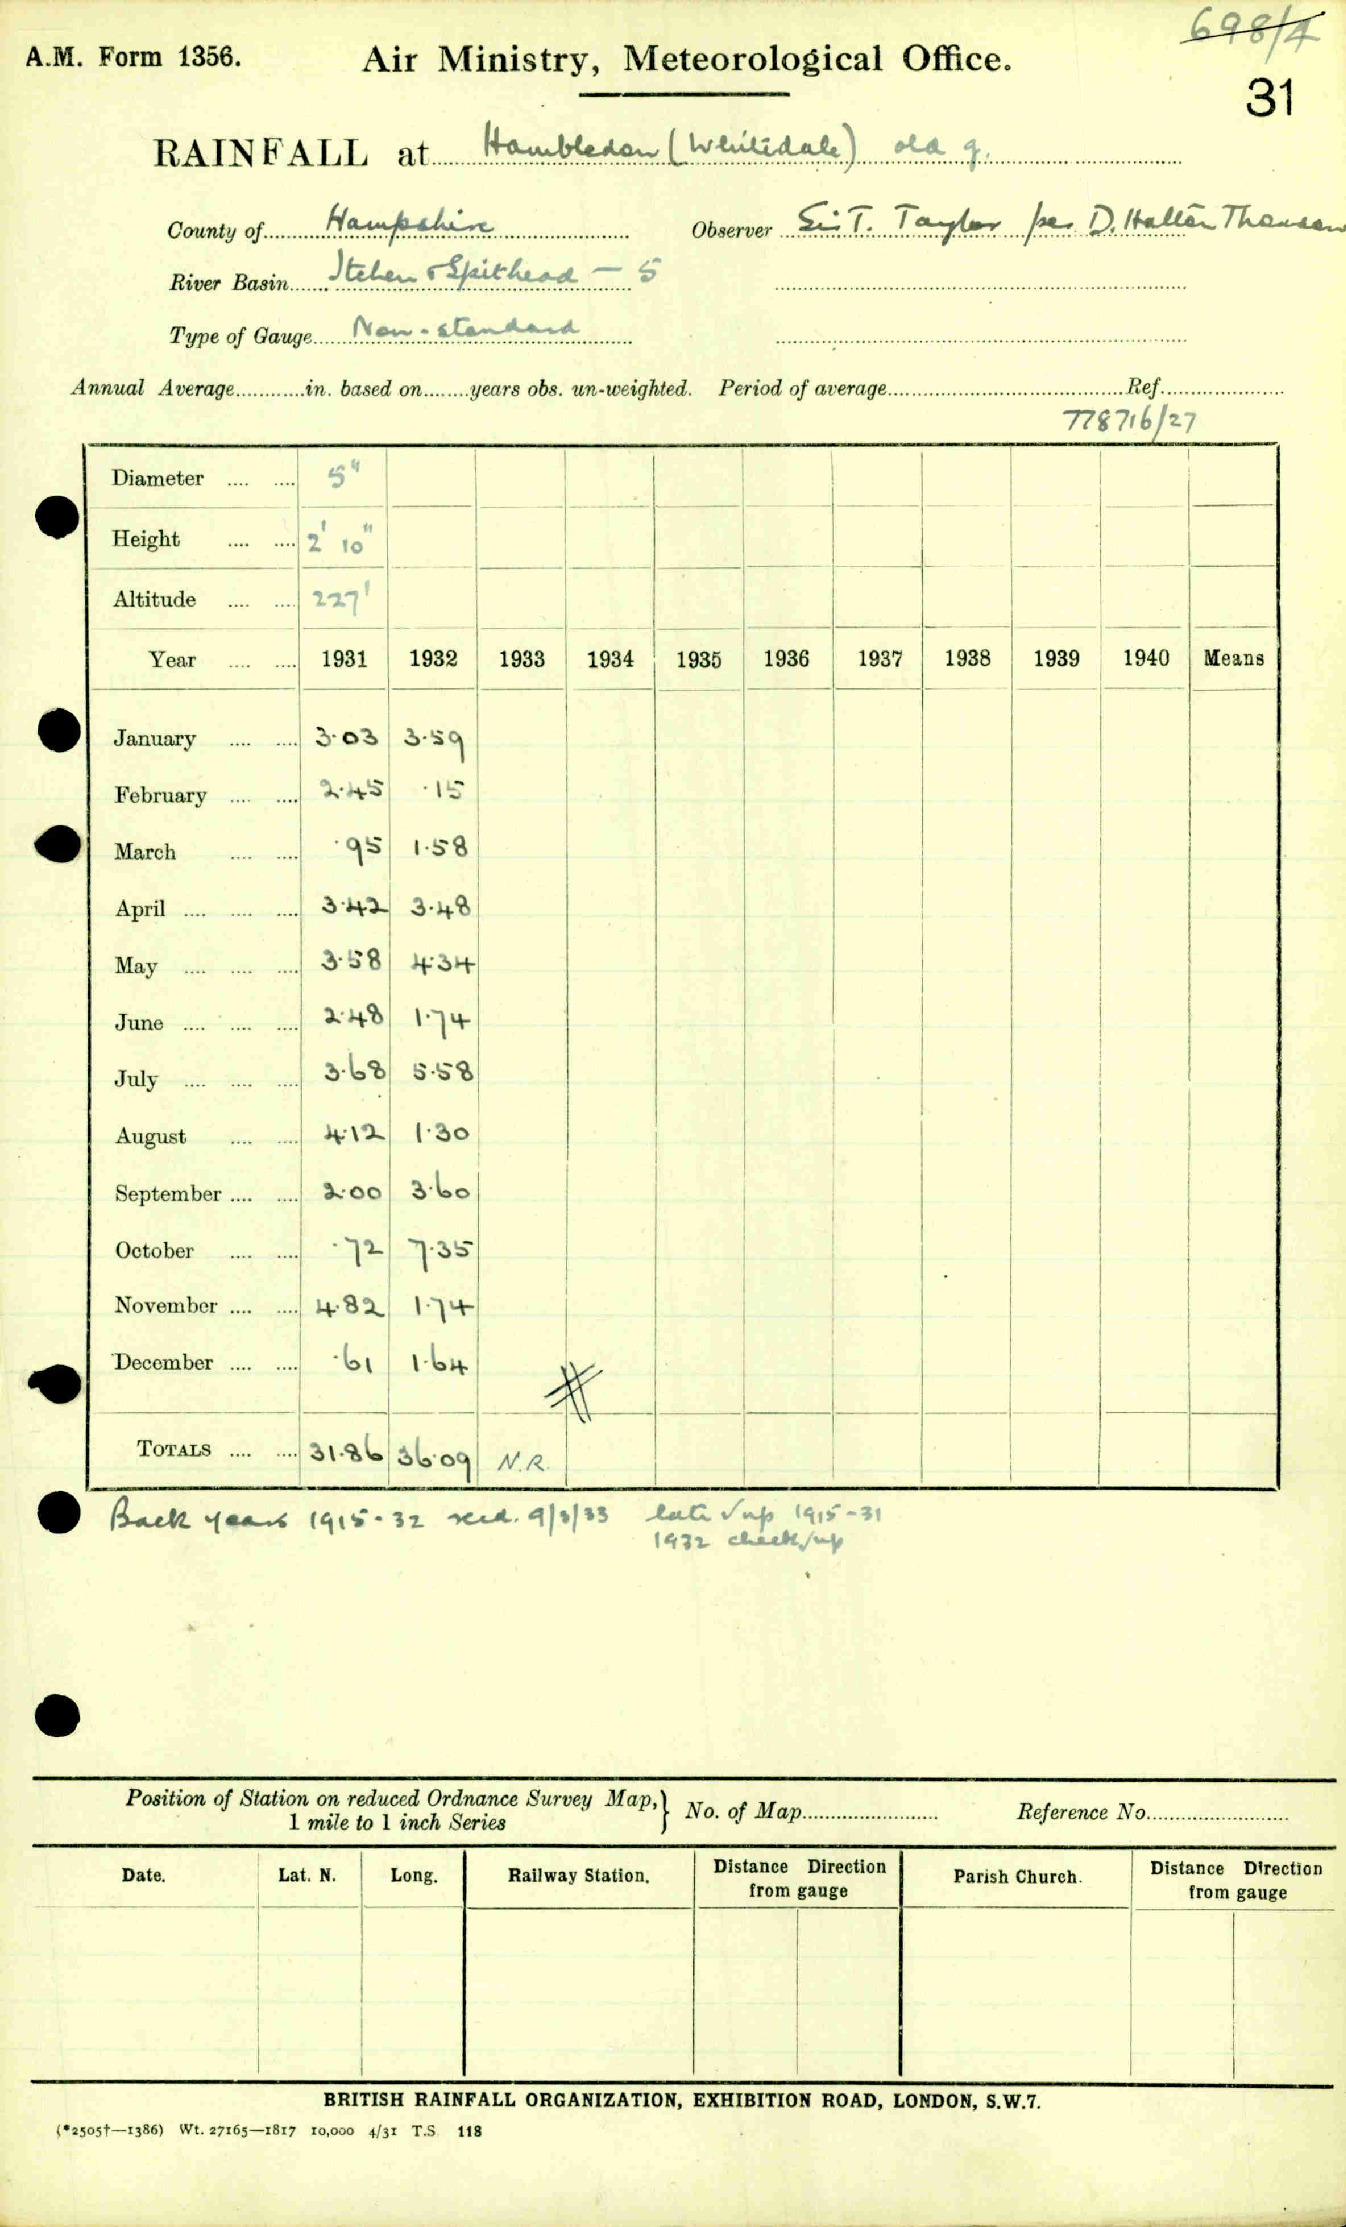 698/4
A.M. Form 1356. Air Ministry, Meteorological Office.
31
RAINFALL at Hambledon (Whitedale) old g.
County of Hampshire Observer Sir T. Taylor per D. Halton Thomson
River Basin Itchen & Spithead – 5
Type of Gauge Non-standard
Annual Average............in. based on........years obs. un-weighted. Period of average........................................Ref.....................
778716/27
Diameter .... .... 5"
Height .... .... 2' 10"
Altitude .... .... 227'
Year .... .... 1931 1932 1933 1934 1935 1936 1937 1938 1939 1940 Means
January .... .... 3.03 3.59
February .... .... 2.45 .15
March .... .... .95 1.58
April .... .... .... 3.42 3.48
May .... .... .... 3.58 4.34
June .... .... .... 2.48 1.74
July .... .... .... 3.68 5.58
August .... .... 4.12 1.30
September .... .... 2.00 3.60
October .... .... .72 7.35
November .... .... 4.82 1.74
December .... .... .61 1.64
TOTALS .... .... 31.86 36.09 N.R.
Back years 1915-32 recd. 9/3/33 late √ up 1915-31
1932 check/up
Position of Station on reduced Ordnance Survey Map, } No. of Map........................ Reference No.........................
1 mile to 1 inch Series
Date. Lat. N. Long. Railway Station. Distance Direction from gauge Parish Church. Distance Direction from gauge
BRITISH RAINFALL ORGANIZATION, EXHIBITION ROAD, LONDON, S.W.7.
(*2505†—1386) Wt. 27165—1817 10,000 4/31 T.S. 118